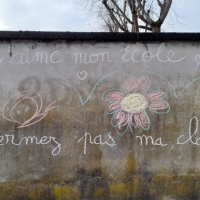 j'aime mon école
fermez pas ma cla